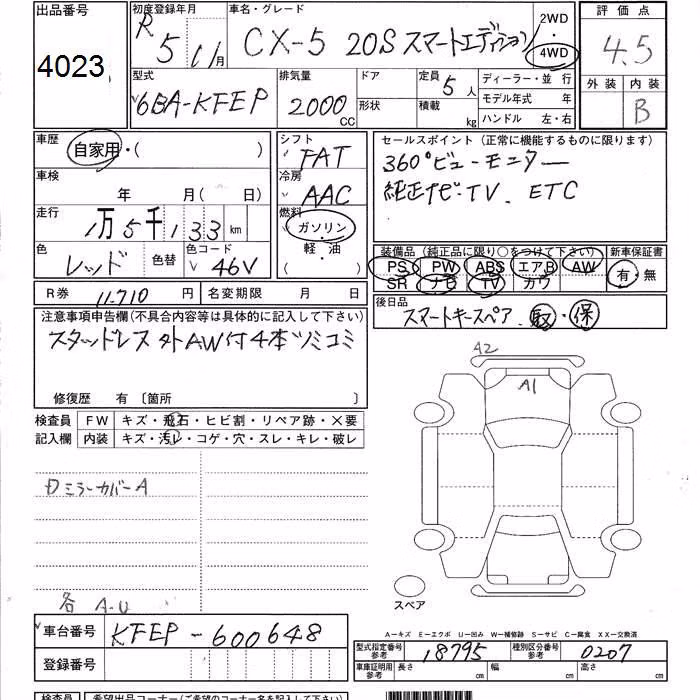 出品番号
4023
初度登録年月
R 5 11月
車名・グレード
CX-5 20S スマートエディション
2WD
4WD
評価点
4.5
外装 内装
B
型式
6BA-KFEP
排気量
2000 CC
ドア
形状
定員 5人
積載 kg
ディーラー・並行
モデル年式 年
ハンドル 左・右
車歴
自家用・( )
車検
年 月( 日)
走行
1万5千133km
色
レッド
色替
色コード
46V
シフト
FAT
冷房
AAC
燃料
ガソリン
軽・油
( )
セールスポイント(正常に機能するものに限ります)
360°ビューモニター
純正ナビ・TV. ETC
装備品(純正品に限り○をつけて下さい)
PS PW ABS エアB AW
SR ナビ TV カワ
新車保証書
有・無
R券 11,710円
名変期限 月 日
後日品
スマートキースペア 取・保
注意事項申告欄(不具合内容等は具体的に記入して下さい)
スタッドレス 外AW付4本ツミコミ
修復歴 有〔箇所 〕
検査員
記入欄
FW キズ・飛石・ヒビ割・リペア跡・×要
内装 キズ・汚レ・コゲ・穴・スレ・キレ・破レ
Dミラーカバー A
各 A-U
A2
A1
スペア
車台番号 KFEP-600648
登録番号
A－キズ E－エクボ U－凹み W－補修跡 S－サビ C－腐食 XX－交換済
型式指定番号
参考
18795
種別区分番号
参考
0207
車庫証明用
参考
長さ cm 幅 cm 高さ cm
検査員
希望出品コーナー(ご希望のコーナー名を記入下さい)